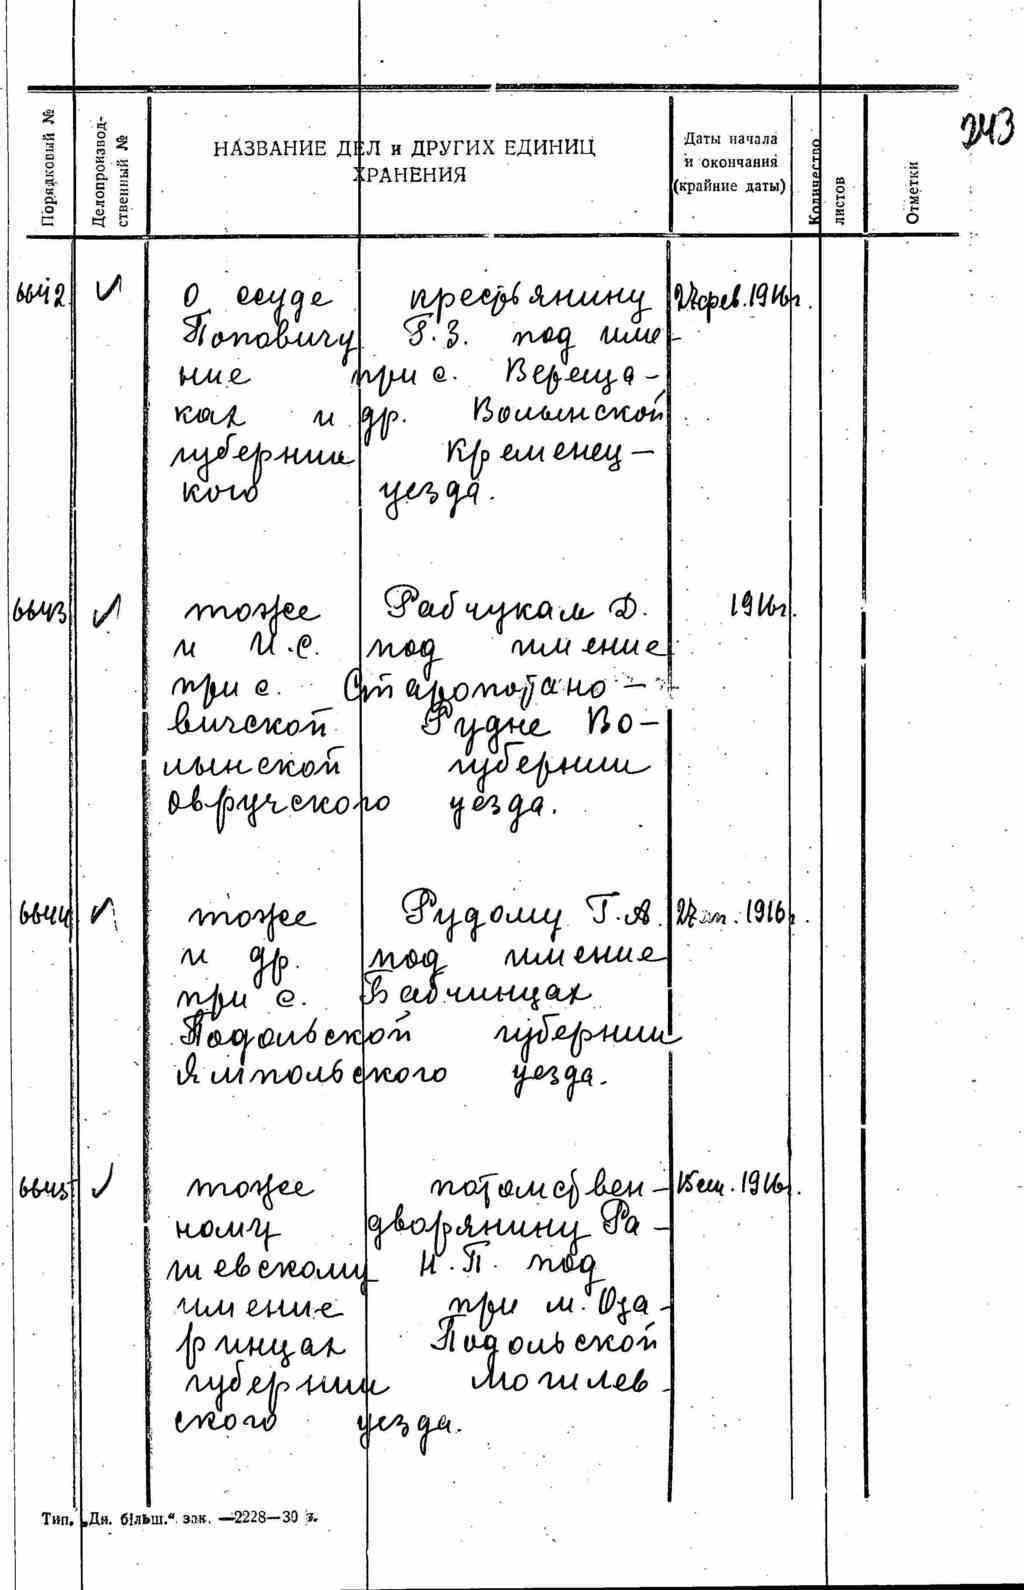 243
Порядковый №
Делопроизвод-
ственный №
НАЗВАНИЕ ДЕЛ и ДРУГИХ ЕДИНИЦ
ХРАНЕНИЯ
Даты начала
и окончания
(крайние даты)
Количество
листов
Отметки
6642 О ссуде крестьянину 27 фев. 1916г.
Поповичу Г.З. под име-
ние при с. Вереща-
ках и др. Волынской
губернии Кременец-
кого уезда.
6643 тоже Рабчукам Д. 1916г.
и И.С. под имение
при с. Старопотано-
вичской Рудне Во-
лынской губернии
Овручского уезда.
6644 тоже Рудому Г.А. 27 1916г.
и др. под имение
при с. Бабчинцах
Подольской губернии
Ямпольского уезда.
6645 тоже потомствен- 15 1916г.
ному дворянину Ра-
шевскому Н.П. под
имение при м. Оза-
ринцах Подольской
губернии Могилев-
ского уезда.
Тип. „Дн. більш.“ зак. —2228—30 г.